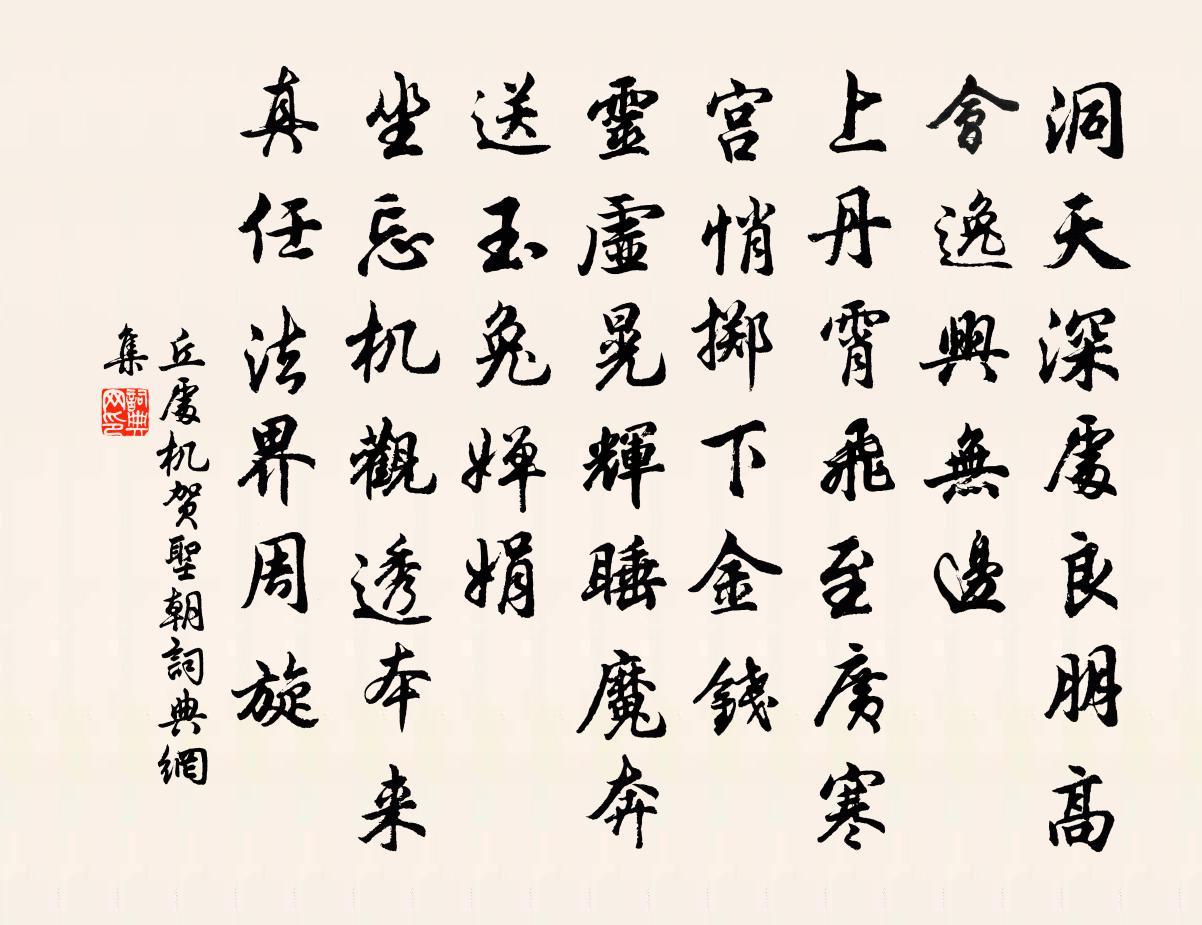 洞天深處良朋高
會逸興無邊
上丹霄飛至廣寒
宮悄擲下金錢
靈虛晃輝睡魔奔
送玉兔嬋娟
坐忘机觀透本来
真任法界周旋
丘處机贺聖朝詞典網
集
詞典
网印